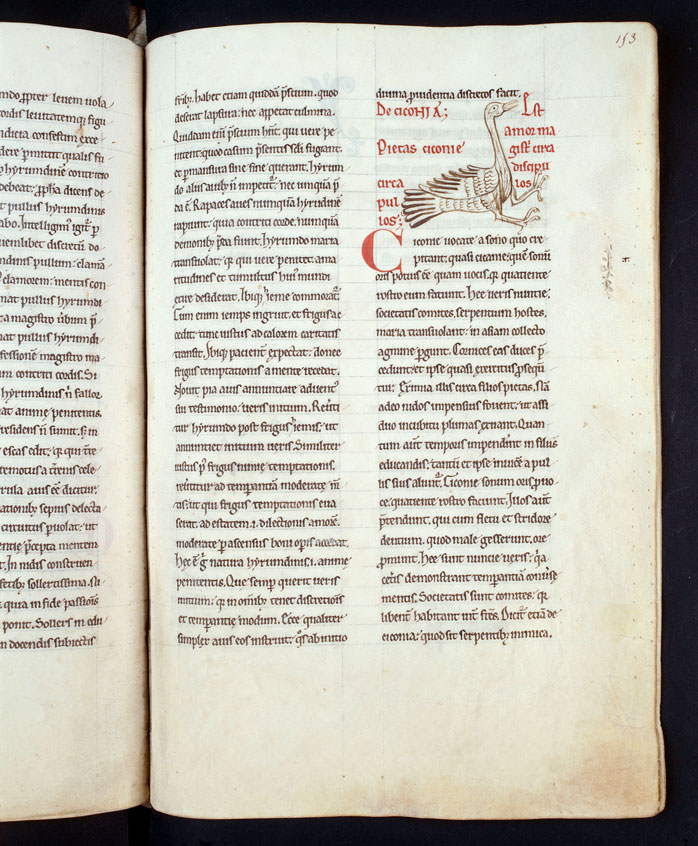 mdo ꝓpter leuem uola
cordis leuitatemq; figu
ndicia confestim exce
dere pmittit qualis fu
hyrundinis contritio
debeat: ꝓpha dicens de
t pullus hyrundinis
labo. Intelligim igit p
uemlibet discretū do
undinis pullum: clamā
clamorem: mentis con
mat pullus hyrundi
a magistro ūbum p
mat pullus hyrundi
fessione magistro ma
m contriti cordis. Si
hyrundinis n fallor
at anime penitentis.
residens n sumit. s; in
escas edit: q; qui tr̄e
remotus a t̄renis cele
rula auis ee dicitur.
ationib; sepius delecta
circuitus puolat: ut
entie pcepta mentem
t. In nidis construen
setib; sollertissima. su
quia in fide passiois
ponit. Sollers in edu
n docendis subiectis
153
frib;. habet etiam quidda pscium. quod
deserat lapsura: nec appetat culmina.
Quiddam eni pscium hnt: qui uere pe
nitent. quo casum psentis scli fugiant.
et pmansura sine fine querant. hyrun
do aliis auib; n impetit: nec umqua p
da ē. Rapaces aues nunqua hyrundine
rapiunt. quia contriti corde. nunqua
demonib; pda fiunt. hyrundo maria
transuolat: q; qui uere penitet. ama
ritudines et tumultus hui mundi
exire desiderat. Ibiq; hieme commorat.
Cum enim temps ingruit. et frigus ac
cedit: tunc iustus ad calorem caritatis
transit. Ibiq; pacient expectat: donec
frigus temptationis a mente recedat.
Nouit pia auis annuntiare aduent
sui testimonio: ueris initium. Reuti
tur hyrundo post frigus hiemis: ut
annuntiet initium ueris. Similiter
iustus p frigus nimie temptationis.
reuertitur ad temperantia moderate m
tis: ut qui frigus temptationis eua
serat. ad estatem .i. dilectionis amore.
moderate p ascensus boni opis accedat.
Hec ē g natura hyrundinis .i. anime
penitentis. Que semp querit ueris
initium: q; in omib; tenet discretiois
et temperantie modum. Ecce qualiter
simplex auis eos instruit: qs ab initio
diuina ꝓuidentia discretos facit.
De ciconia;
Est
amor ma
gistri circa
discipu
los.
Pietas ciconie
circa
pul
los;
Ciconie uocate a sono quo cre
pitant: quasi cicanie: que sonū
oris potius ee quam uocis. q; quatiente
rostro eum faciunt. Hee ueris nuntie.
societatis comites. serpentium hostes.
maria transuolant: in asiam collecto
agmine pgunt. Cornices eas duces p
cedunt: et ipse quasi exercitus psequn
tur. Eximia illis circa filios pietas. Na
adeo nidos impensius fouent: ut assi
duo incubitu plumas exuant. Quan
tum aut temporis impendint in filiis
educandis: tantu et ipse inuice a pul
lis suis aluntur. Ciconie sonum oris ꝓ uo
ce. quatiente rostro faciunt. Illos aut
ptendunt. qui cum fletu et stridore
dentium. quod male gesserint. ore
ꝓmunt. Hee sunt nuncie ueris: qa
ceteris demonstrant temperantia conuse
mentis. Societatis sunt comites: q;
libent habitant int fres. Dicit etia de
ciconia: quod sit serpentib; inimica.